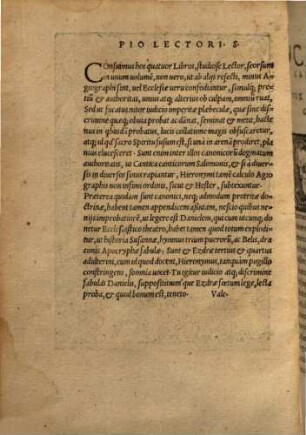 PIO LECTORI. S.
Consuimus hos quatuor Libros, studiose Lector, seorsum
in unum volumẽ, non uero, ut ab alijs resecti, minus Ha
giographi sint, uel Ecclesiæ usu confodiantur,
& authoritas, unius atq; alterius ob culpam, omniũ ruat,
Sed ut fucatus niter iudicio imperitæ plæbeculæ, quæ sine dis
crimine quæq; obuia probat ac damnat, seminat & metit, hacte
nus in ipsis dijs probatus, lucis collatione magis obfuscaretur,
atq; id qd sacro Spiritu fusum est, si uni in arenã proderet, plæ
nius elucesceret. Sunt enim inter illos canonicorũ dogmatum
authoritatis, ut Cantica canticorum Salomonis, & si à diuer
sis in diuersos sensus rapiantur, Hieronymi tamẽ calculo Agio
graphis non infimi ordinis, sicut & Hester, subtexuntur.
Præterea quædam sunt canonicæ, neq; adhuc dum protritæ do
ctrinæ, habent tamen appendicem aliquam, nescio quibus ner
uis improbaturæ, ut legere est Danielem, qui cum secunq; do
netur Ecclesiastico theatro, habet tamen quod totum explodi
tur, ut historia Susannæ, hymnus trium puerorũ, ac Belis, dra
conis Apocryphæ fabulæ. Sunt & Ezdræ tertius & quartus
adulterini, cum id quod docent, Hieronymus, tanquam pugillo
constringens, somnia uocet. Tu igitur iudicio atq; discrimine
fabulas Danielis, supposititium quæ Ezdræ fœtum lege, lecta
proba, & quod bonum est, teneto. Vale.